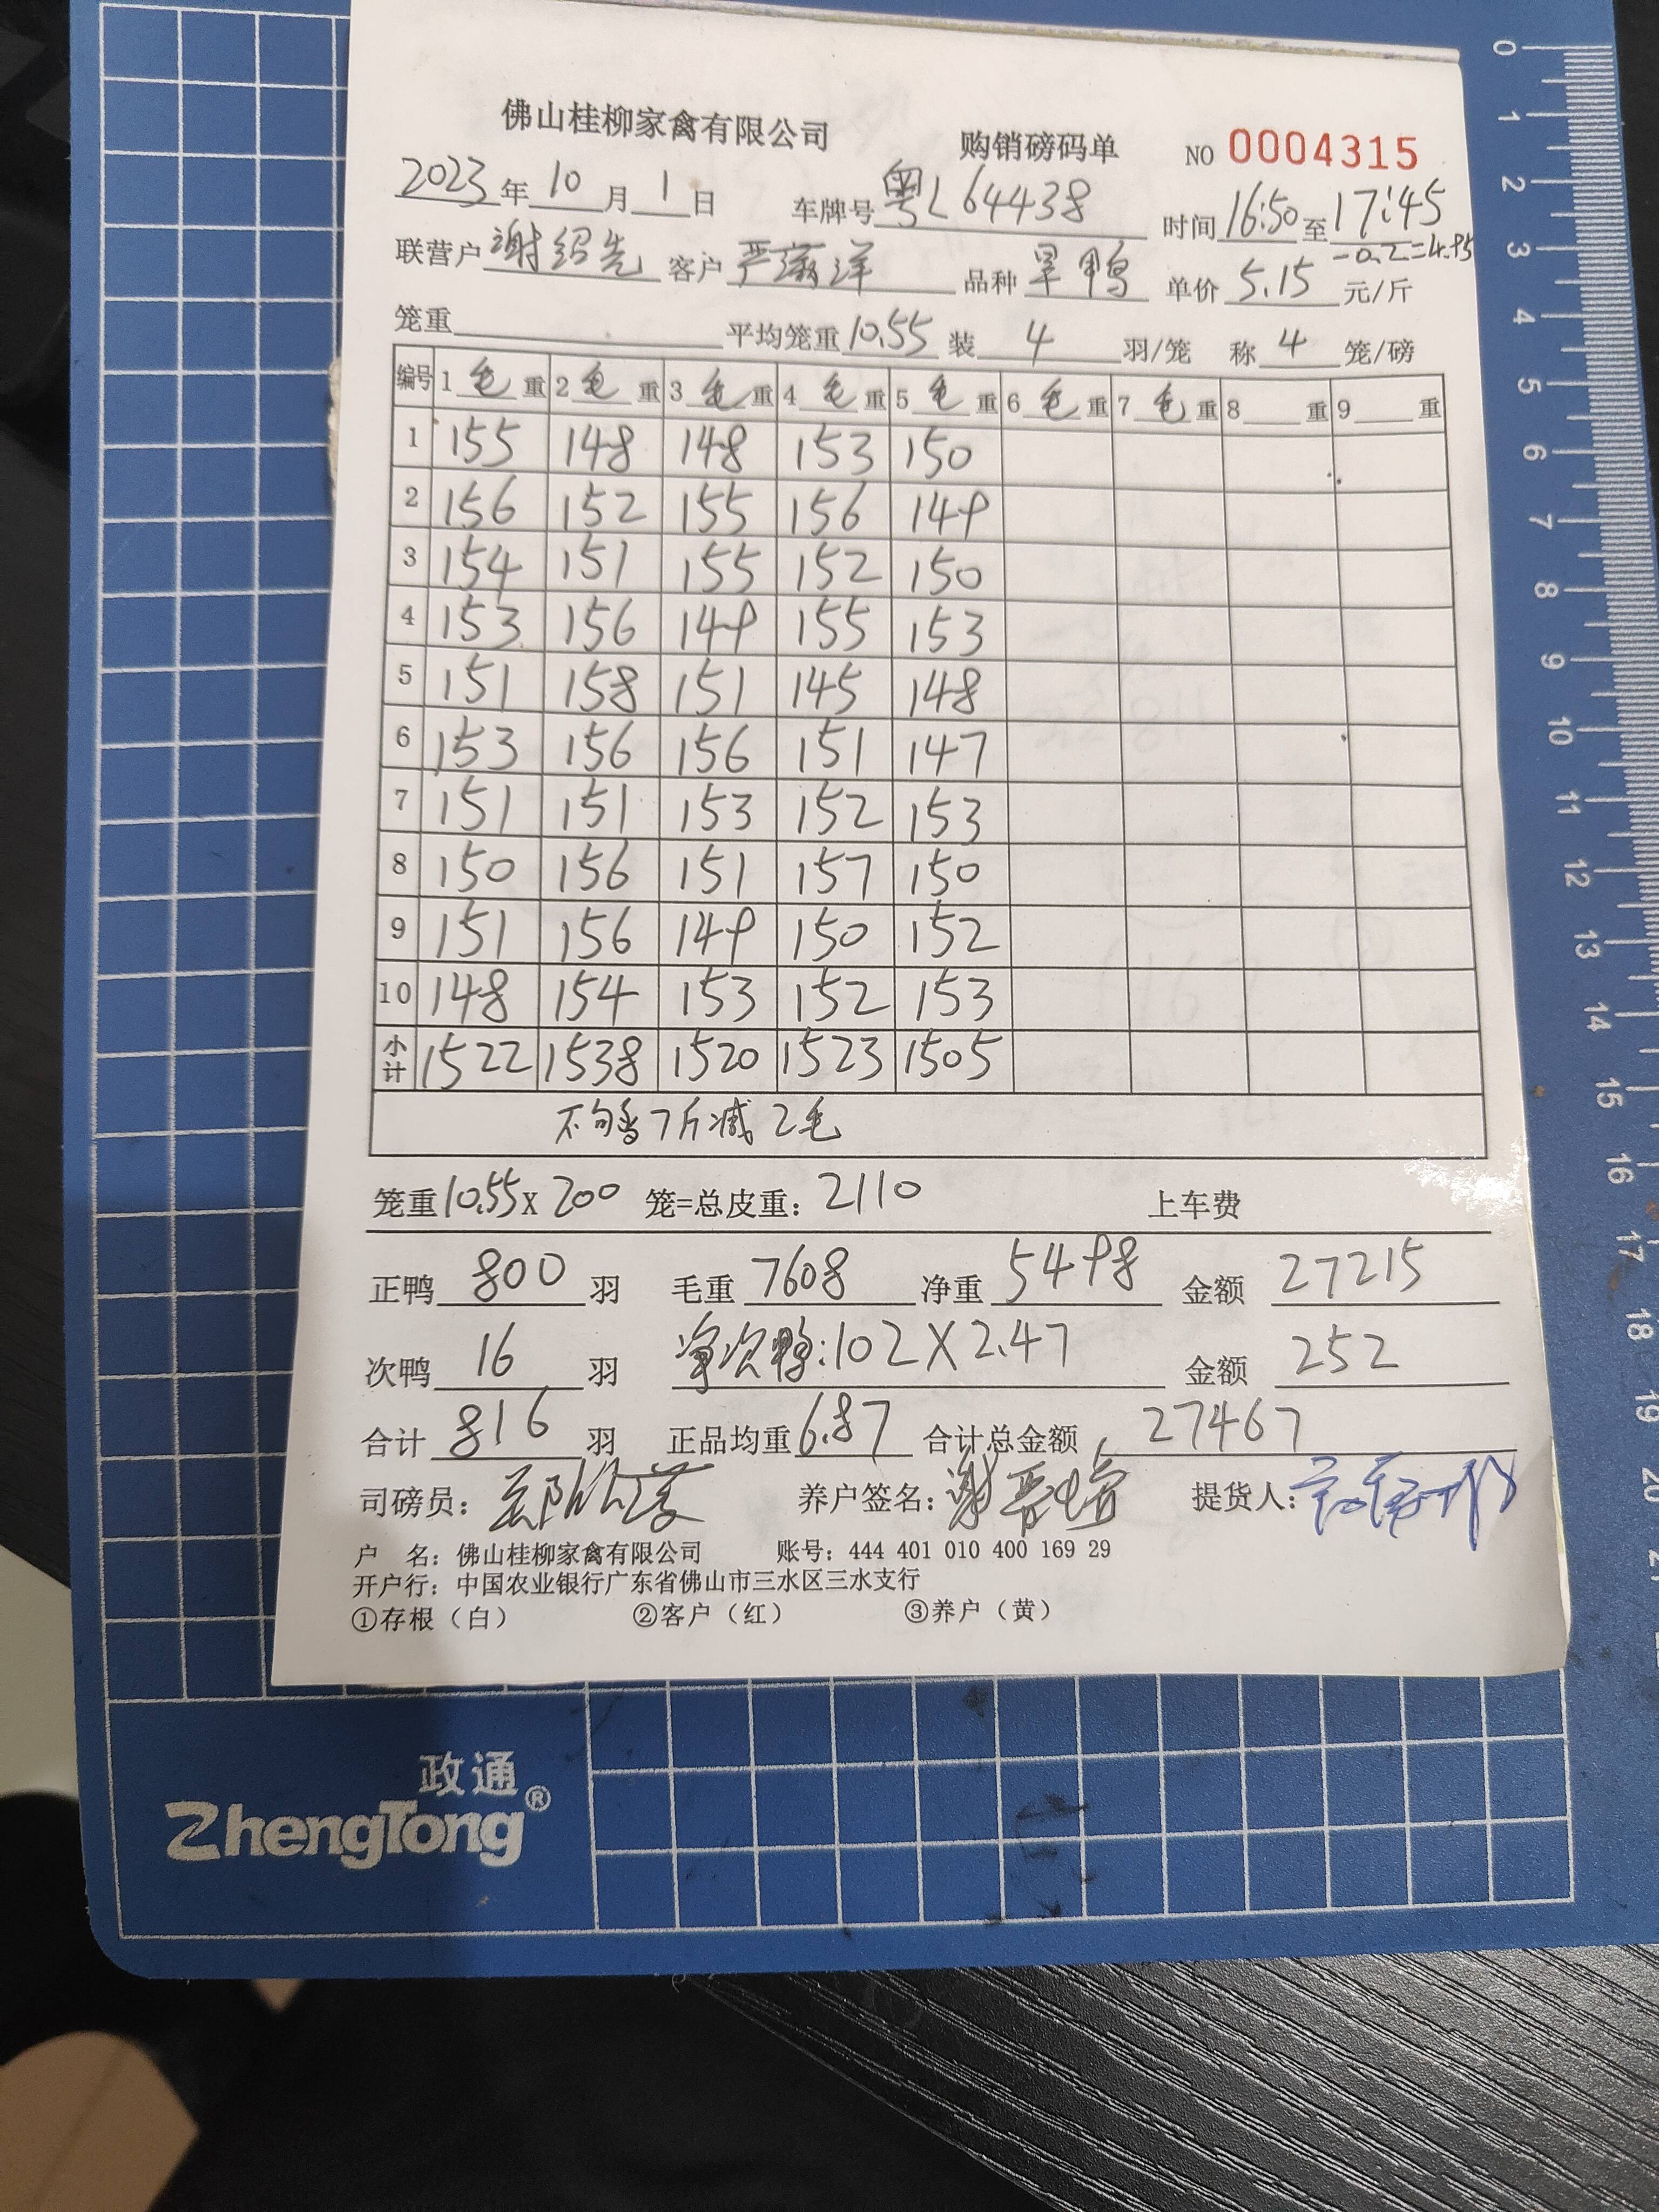 佛山桂柳家禽有限公司 购销磅码单 NO 0004315
2023年10月1日 车牌号粤L64438 时间16:50至17:45
联营户谢绍先 客户严 洋 品种旱鸭 单价5.15元/斤 -0.2=4.95
笼重 平均笼重10.55 装4羽/笼 称4笼/磅
编号 1毛重 2毛重 3毛重 4毛重 5毛重 6毛重 7毛重 8 重 9 重
1 155 148 148 153 150
2 156 152 155 156 149
3 154 151 155 152 150
4 153 156 149 155 153
5 151 158 151 145 148
6 153 156 156 151 147
7 151 151 153 152 153
8 150 156 151 157 150
9 151 156 149 150 152
10 148 154 153 152 153
小计 1522 1538 1520 1523 1505
不 7斤减2毛
笼重10.55X200笼=总皮重:2110 上车费
正鸭800羽 毛重7608 净重5498 金额27215
次鸭16羽 净次鸭:102X2.47 金额252
合计816羽 正品均重6.87 合计总金额27467
司磅员: 养户签名: 提货人:
户 名:佛山桂柳家禽有限公司 账号:444 401 010 400 169 29
开户行:中国农业银行广东省佛山市三水区三水支行
①存根(白) ②客户(红) ③养户(黄)
0
1
2
3
4
5
6
7
8
9
10
11
12
13
14
15
16
17
18
19
20
政通
ZhengTong®